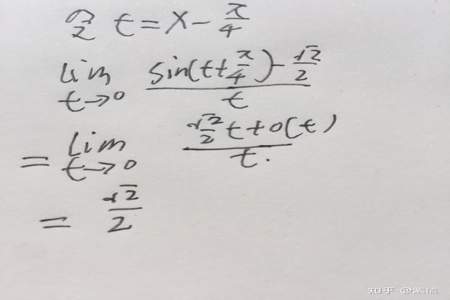 令 t=x-π/4
lim t→0 (sin(t+π/4)-√2/2)/t
= lim t→0 (√2/2 t+o(t))/t.
= √2/2